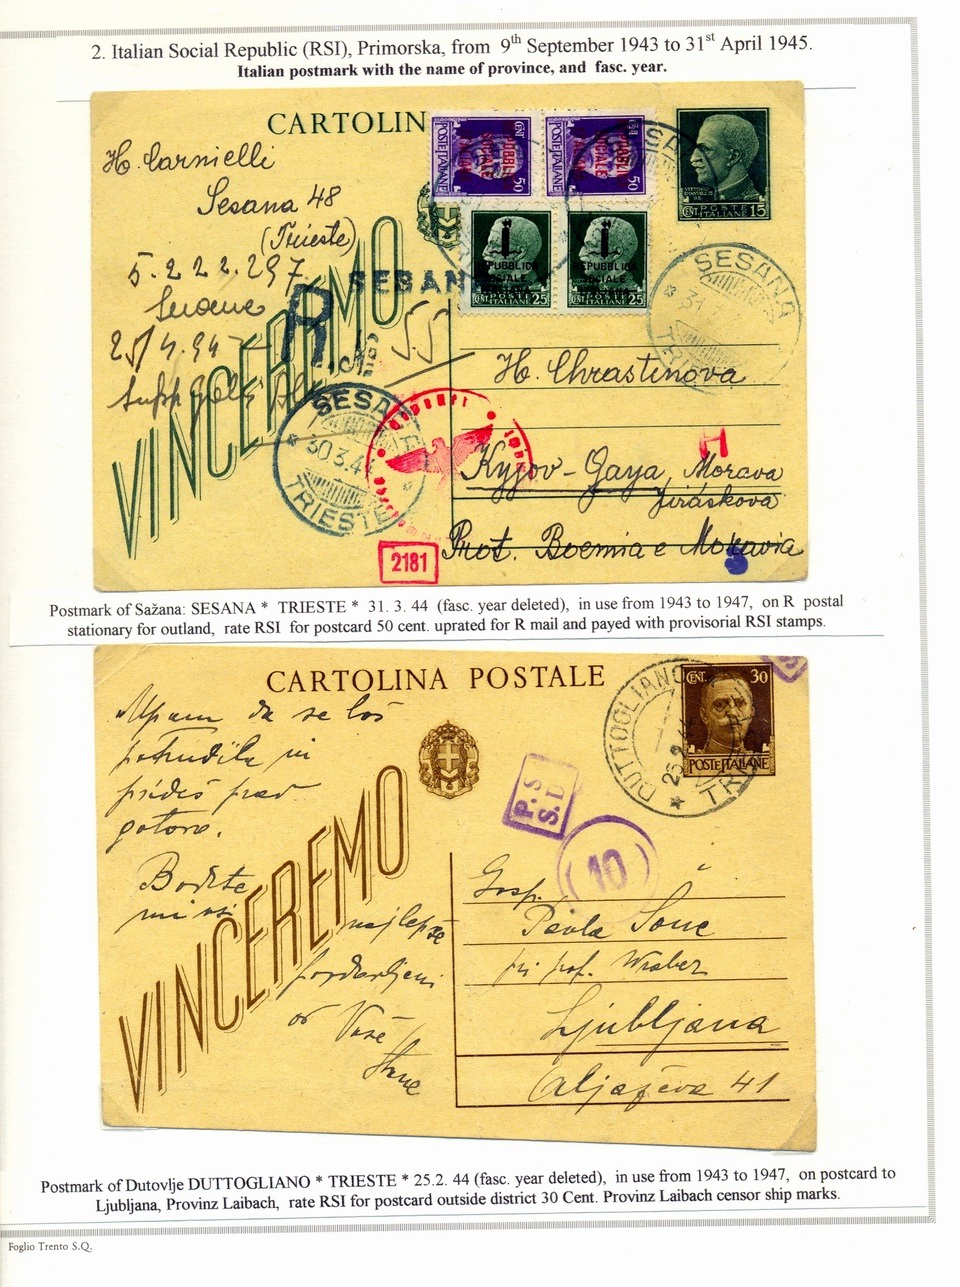 2. Italian Social Republic (RSI), Primorska, from 9th September 1943 to 31st April 1945.
Italian postmark with the name of province, and fasc. year.
CARTOLIN
H. Carnielli
Sesana 48
(Trieste)
5.222.297
25/4.94
VINCEREMO
R
SESANA
55
POSTE ITALIANE
CENT 50
REPUBBLICA SOCIALE ITALIANA
POSTE ITALIANE
CENT 50
REPUBBLICA SOCIALE ITALIANA
POSTE ITALIANE
CENT. 25
REPUBBLICA SOCIALE ITALIANA
POSTE ITALIANE
CENT. 25
REPUBBLICA SOCIALE ITALIANA
CENT. POSTE ITALIANE 15
SESANA
* 31
TRIESTE
SESANA
* 30.3.44 *
TRIESTE
2181
H. Chrastinova
Kyjov - Gaya, Morava
Jiráskova
Prot. Boemia e Moravia
Postmark of Sažana: SESANA * TRIESTE * 31. 3. 44 (fasc. year deleted), in use from 1943 to 1947, on R postal
stationary for outland, rate RSI for postcard 50 cent. uprated for R mail and payed with provisorial RSI stamps.
CARTOLINA POSTALE
CENT. 30
POSTE ITALIANE
DUTTOGLIANO
25.2.44
* TRIESTE
Upam da se boš
potrudila in
prideš prav
gotovo.
VINCEREMO
najlepše
pozdravljeni
od Vaše
P. S.
S. D.
10
Gosp.
Pavla Šonc
pri prof. Wraber
Ljubljana
Aljaževa 41
Postmark of Dutovlje DUTTOGLIANO * TRIESTE * 25.2. 44 (fasc. year deleted), in use from 1943 to 1947, on postcard to
Ljubljana, Provinz Laibach, rate RSI for postcard outside district 30 Cent. Provinz Laibach censor ship marks.
Foglio Trento S.Q.